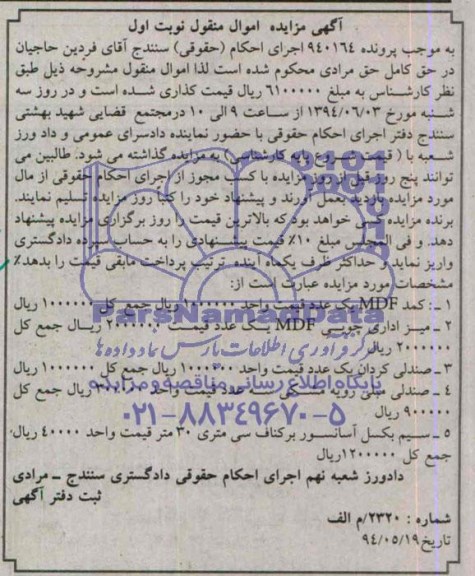 آگهی مزایده اموال منقول نوبت اول
به موجب پرونده ۹۴۰۱۶۴ اجرای احکام (حقوقی) سنندج آقای فردین حاجیان
در حق کامل حق مرادی محکوم شده است لذا اموال منقول مشروحه ذیل طبق
نظر کارشناس به مبلغ ۶۱۰۰۰۰۰ ریال قیمت گذاری شده است و در روز سه
شنبه مورخ ۱۳۹۴/۰۶/۰۳ از ساعت ۹ الی ۱۰ درمجتمع قضایی شهید بهشتی
سنندج دفتر اجرای احکام حقوقی با حضور نماینده دادسرای عمومی و داد ورز
شعبه با ( قیمت شروع پایه کارشناسی) به مزایده گذاشته می شود. طالبین می
توانند پنج روز قبل از روز مزایده با کسب مجوز از اجرای احکام حقوقی از مال
مورد مزایده بازدید بعمل آورند و پیشنهاد خود را کتبا روز مزایده تسلیم نمایند.
برنده مزایده کسی خواهد بود که بالاترین قیمت را روز برگزاری مزایده پیشنهاد
دهد. و فی المجلس مبلغ ۱۰٪ قیمت پیشنهادی را به حساب سپرده دادگستری
واریز نماید و حداکثر ظرف یکماه آینده ترتیب پرداخت مابقی قیمت را بدهد٪
مشخصات مورد مزایده عبارت است از:
۱ ـ: کمد MDF یک عدد قیمت واحد ۱۰۰۰۰۰۰ ریال جمع کل ۱۰۰۰۰۰۰ ریال
۲ ـ میز اداری چوبی MDF یک عدد قیمت ۲۰۰۰۰۰۰ ریال جمع کل
۲۰۰۰۰۰۰ ریال
۳ ـ صندلی گردان یک عدد قیمت واحد ۱۰۰۰۰۰۰ ریال جمع کل ۱۰۰۰۰۰۰ ریال
۴ ـ صندلی مبلی رویه مشکی سه عدد قیمت واحد ۳۰۰۰۰۰ ریال جمع کل
۹۰۰۰۰۰ ریال
۵ ـ سیم بکسل آسانسور برکناف سی متری ۳۰ متر قیمت واحد ۴۰۰۰۰ ریال
جمع کل ۱۲۰۰۰۰۰ ریال
دادورز شعبه نهم اجرای احکام حقوقی دادگستری سنندج ـ مرادی
ثبت دفتر آگهی
شماره : ۲۳۲۰/م الف
تاریخ ۹۴/۰۵/۱۹
ParsNamadData
مرکز فرآوری اطلاعات پارس نماد داده ها
پایگاه اطلاع رسانی مناقصه و مزایده
۰۲۱-۸۸۳۴۹۶۷۰-۵